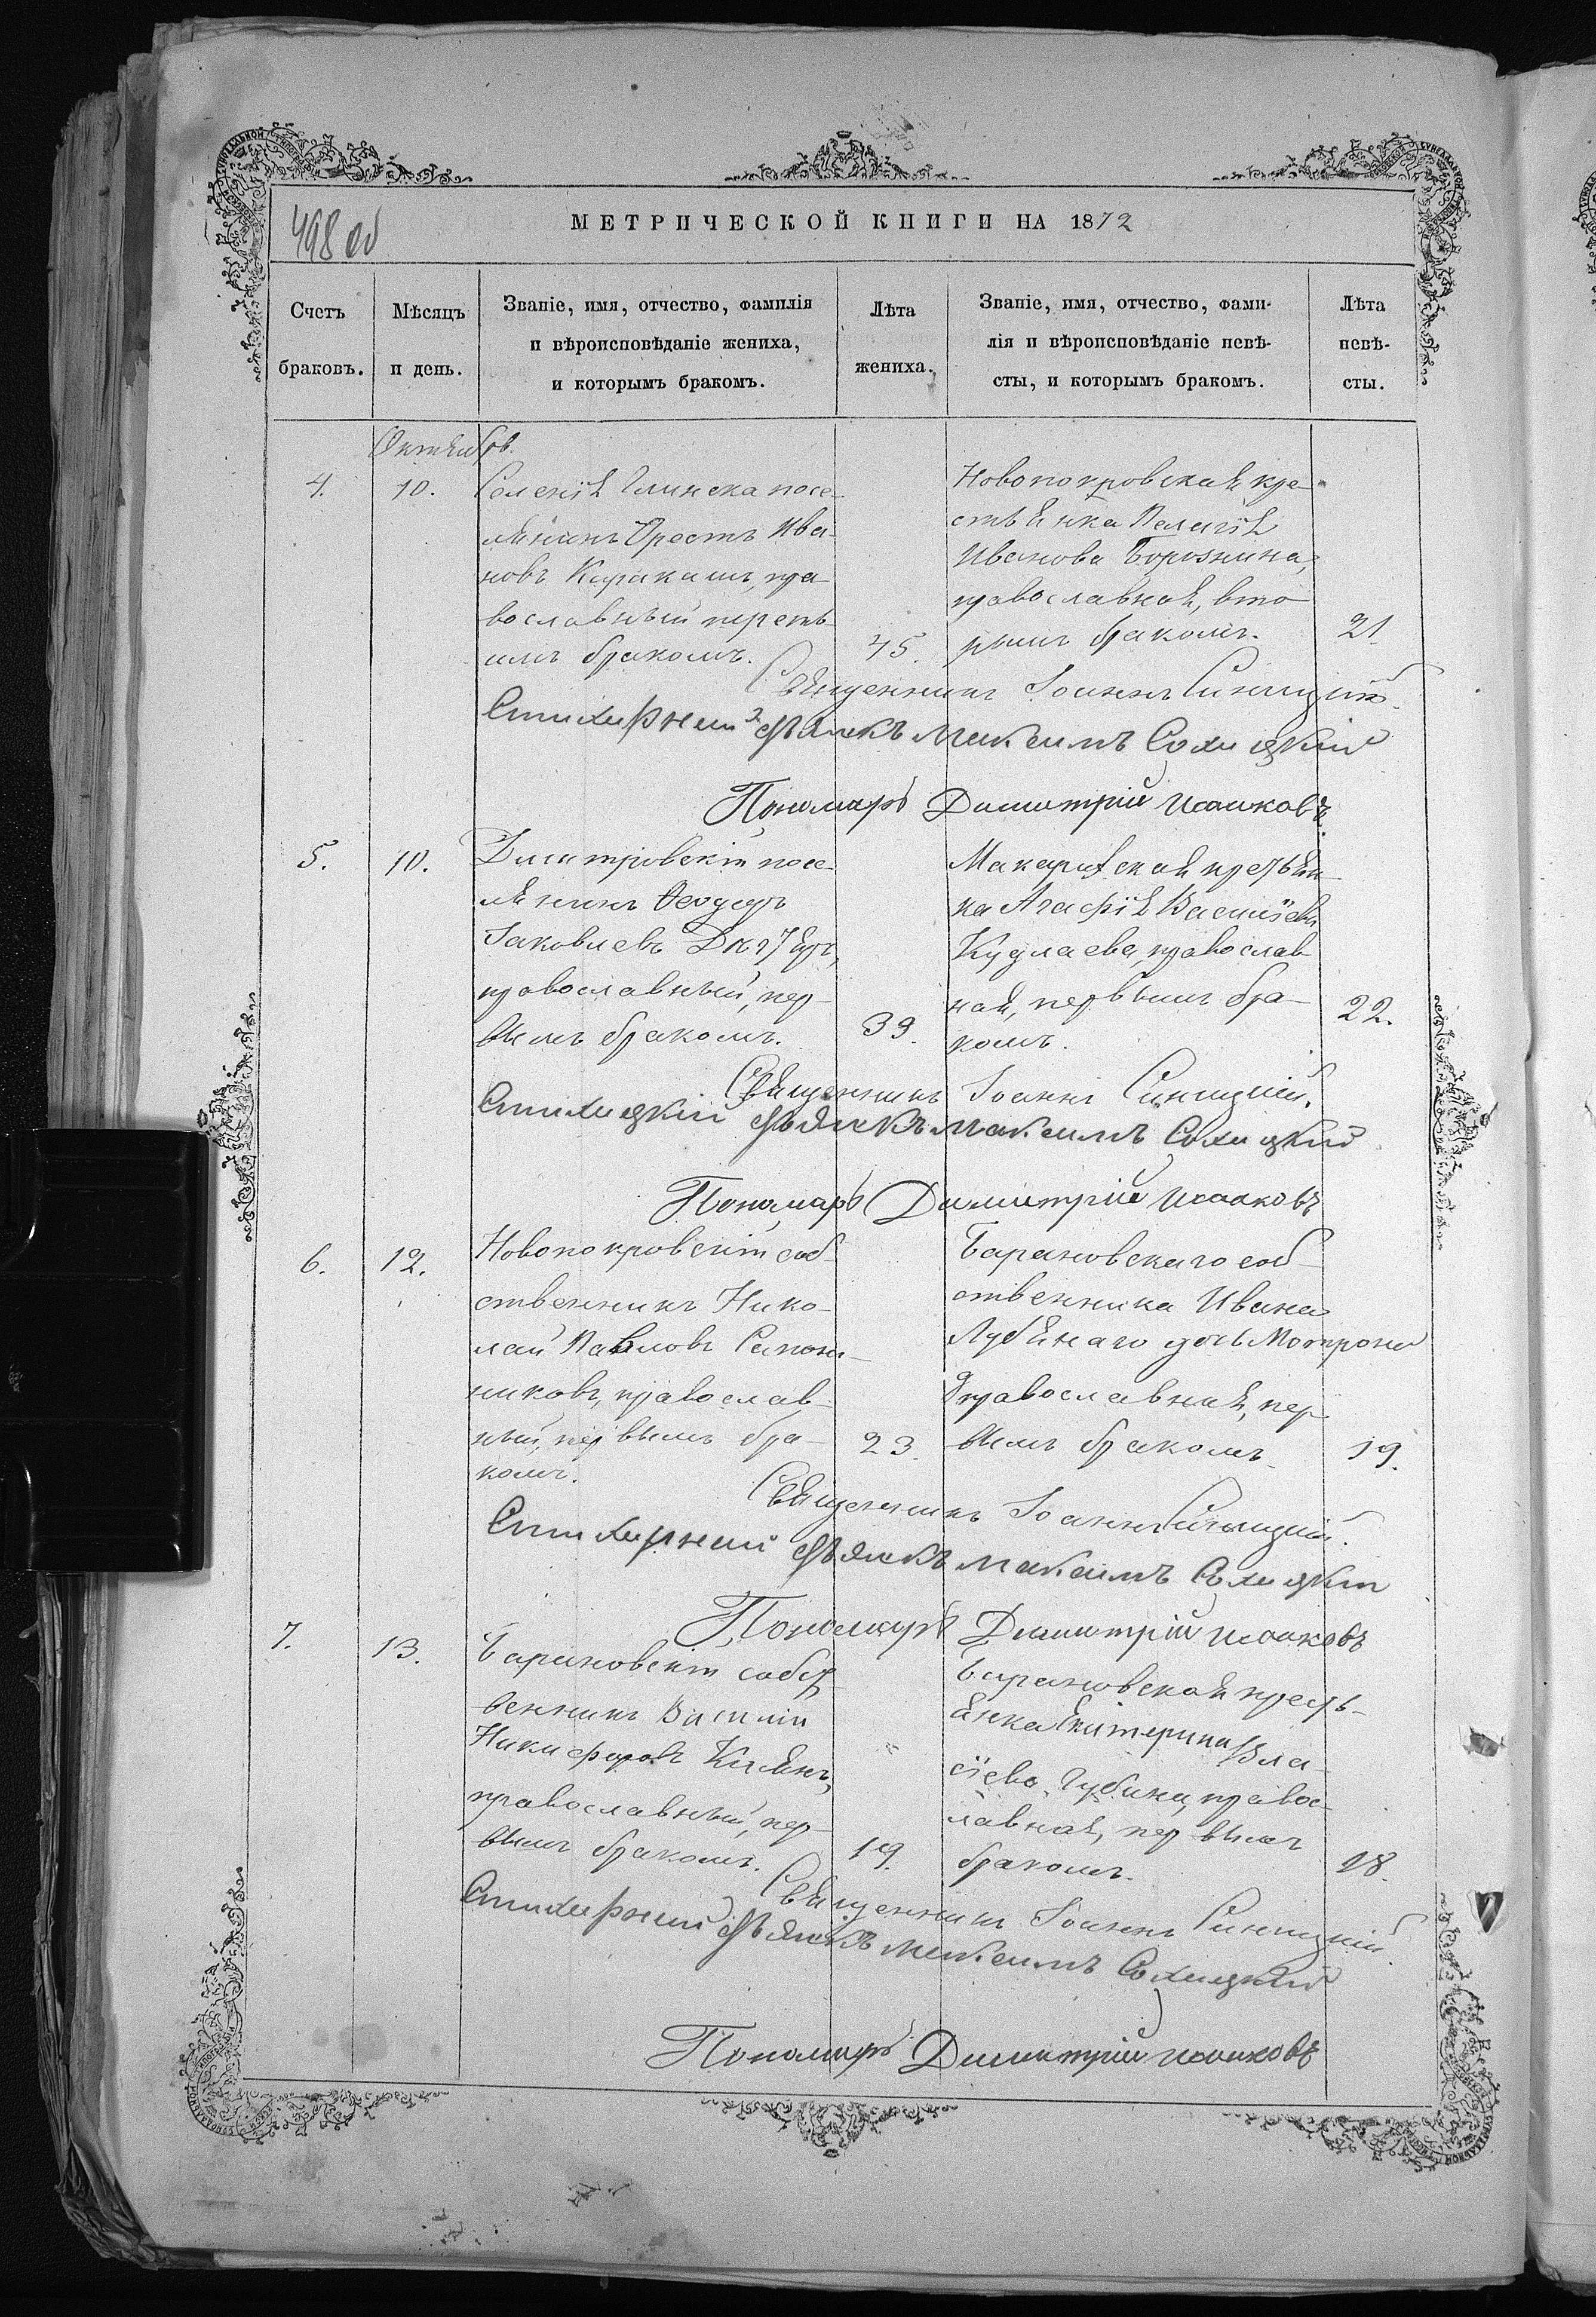 498 об
МЕТРИЧЕСКОЙ КНИГИ НА 1872
Счетъ браковъ.
Мѣсяцъ и день.
Званіе, имя, отчество, фамилія
и вѣроисповѣданіе жениха,
и которымъ бракомъ.
Лѣта жениха.
Званіе, имя, отчество, фами-
лія и вѣроисповѣданіе невѣ-
сты, и которымъ бракомъ.
Лѣта невѣ-
сты.
Октября.
4.
10.
Селенія Глинска посе-
лянинъ Орестъ Ива-
новъ Каракаш, пра-
вославный третьимъ бракомъ.
45.
Новопокровская кре-
стьянка Пелагія
Иванова Борознина,
православная, вто-
рымъ бракомъ.
21.
Священникъ Іоаннъ Синицкій
Стихирный дьячекъ Максимъ Сохицкій
Пономарь Димитрій Исаковъ.
5.
10.
Дмитровскій посе-
лянинъ Ѳеодоръ
Іаковлевъ
православный, пер-
вымъ бракомъ.
39.
крестьян-
ка Агафія Васильева
Кудлаева, православ-
ная, первымъ бра-
комъ.
22.
Священникъ Іоаннъ Синицкій.
дьячекъ Максимъ Сохицкій
Пономарь Димитрій Исаковъ
6.
12.
Новопокровскій соб-
ственникъ Нико-
лай Павловъ Сапож-
никовъ, православ-
ный, первымъ бра-
комъ.
23.
Барановскаго соб-
ственника Ивана
Лубянаго дочь Мотрона
православная, пер-
вымъ бракомъ.
19.
Священникъ Іоаннъ Синицкій.
Стихирный дьячекъ Максимъ Сохицкій
Пономарь Димитрій Исаковъ
7.
13.
Барановскій собст-
венникъ Василій
Никифоровъ
православный, пер-
вымъ бракомъ.
19.
Барановская кресть-
янка Екатерина Вла-
сіева Губина, правос-
лавная, первымъ
бракомъ.
18.
Священникъ Іоаннъ Синицкій.
Стихирный дьячекъ Максимъ Сохицкій
Пономарь Димитрій Исаковъ